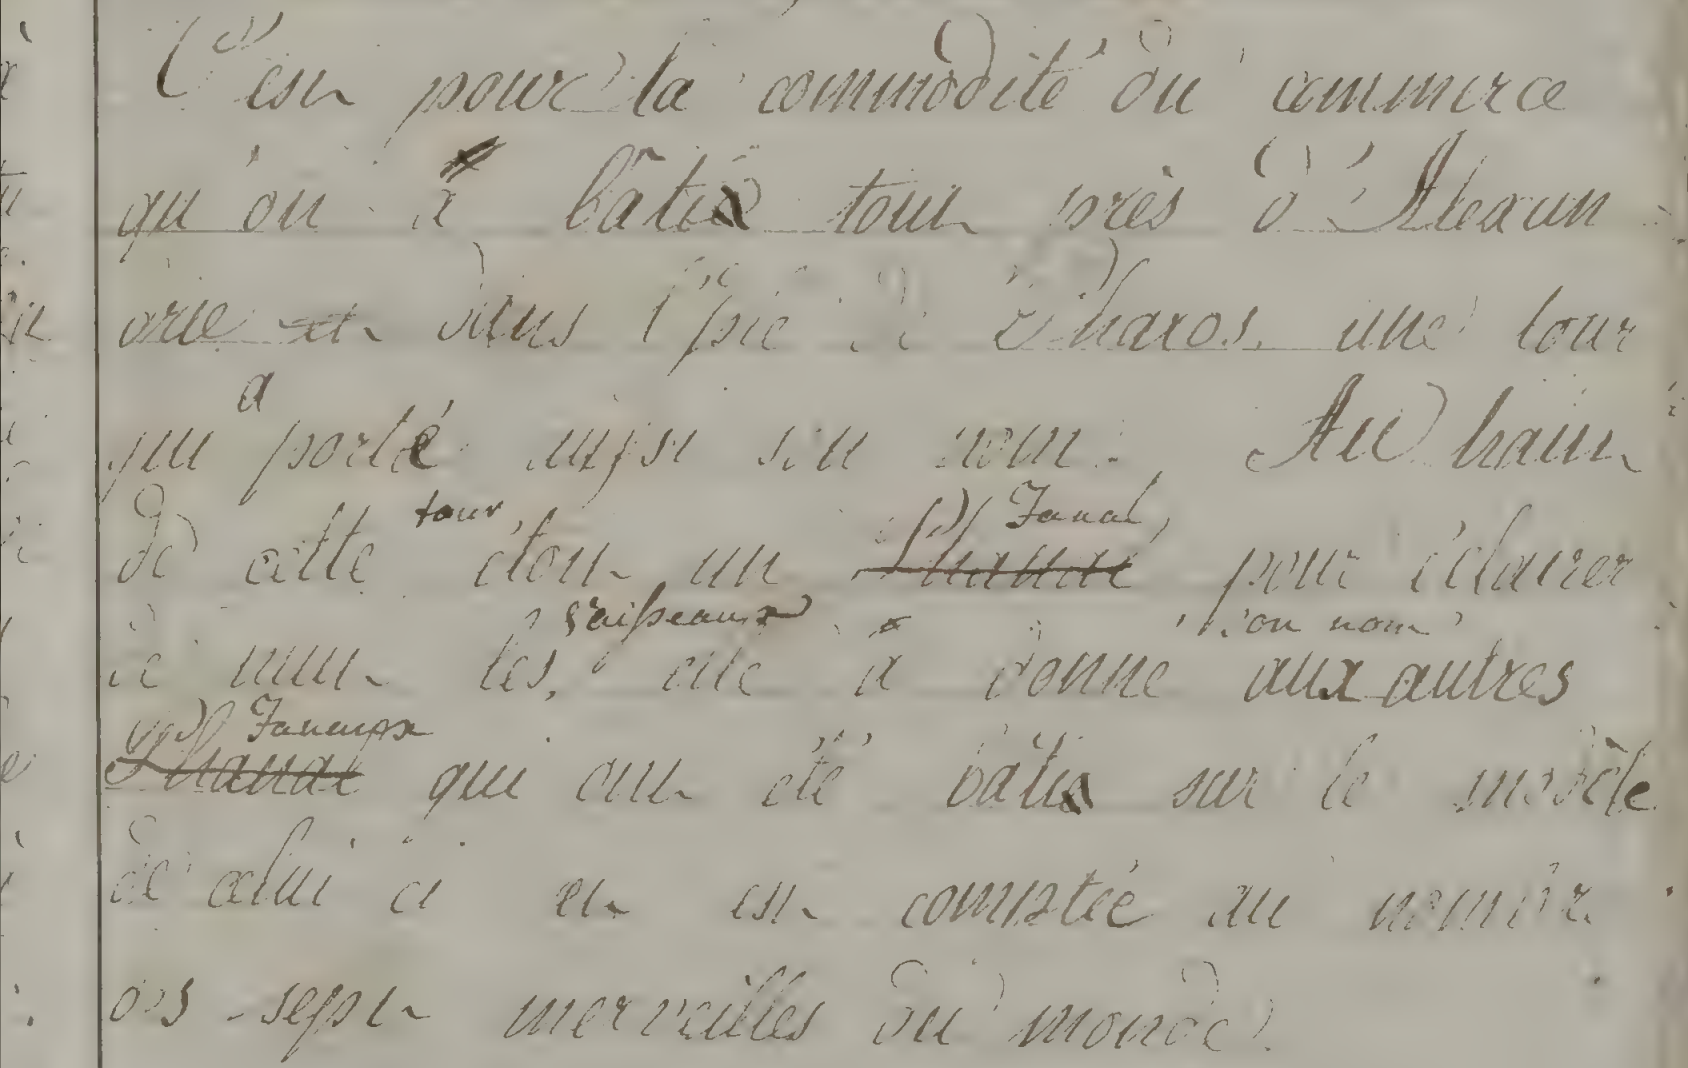 C'est pour la commodité du commerce
qu'on a bâti tout près d'Alexan
drie et dans l'
Pharos, une tour
qui a porté aussi son nom. Au haut
de cette tour, étoit un Fanal, pour éclairer
de nuit les vaisseaux elle a donné son nom aux autres
Fanaux qui ont été bâtis sur le modèle
de celui ci et est comptée au nombre
des sept merveilles du monde.